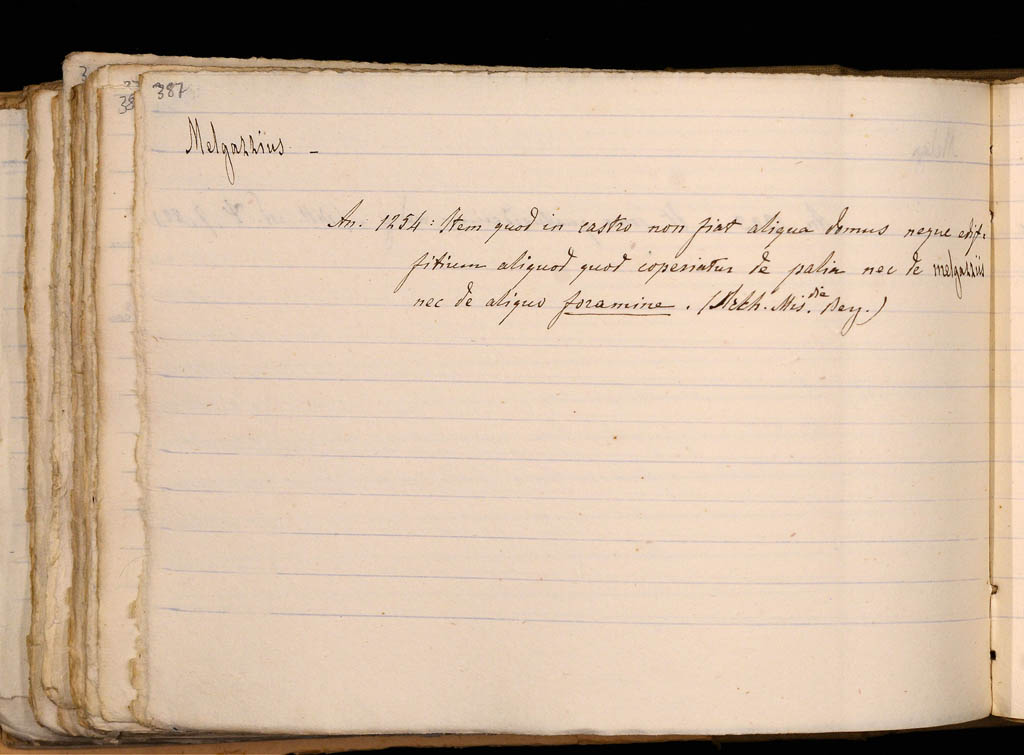 387
Melgazzius -
An. 1254: Item quod in castro non fiat aliqua domus neque edif-
fitium aliquod quod coperiatur de palia nec de melgazziis
nec de aliquo foramine. (Arch. Mis.die Bey.)